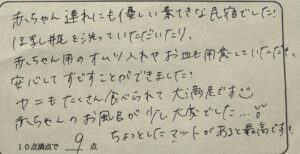 赤ちゃん連れにも優しい素てきな民宿でした!
ほ乳瓶を洗っていただいたり、
赤ちゃん用のオムツ入れやお皿も用意していただき、
安心してすごすことができました!
カニもたくさん食べられて大満足です
赤ちゃんのお風呂が少し大変でした…
ちょっとしたマットがあると最高です!
10点満点で 9点